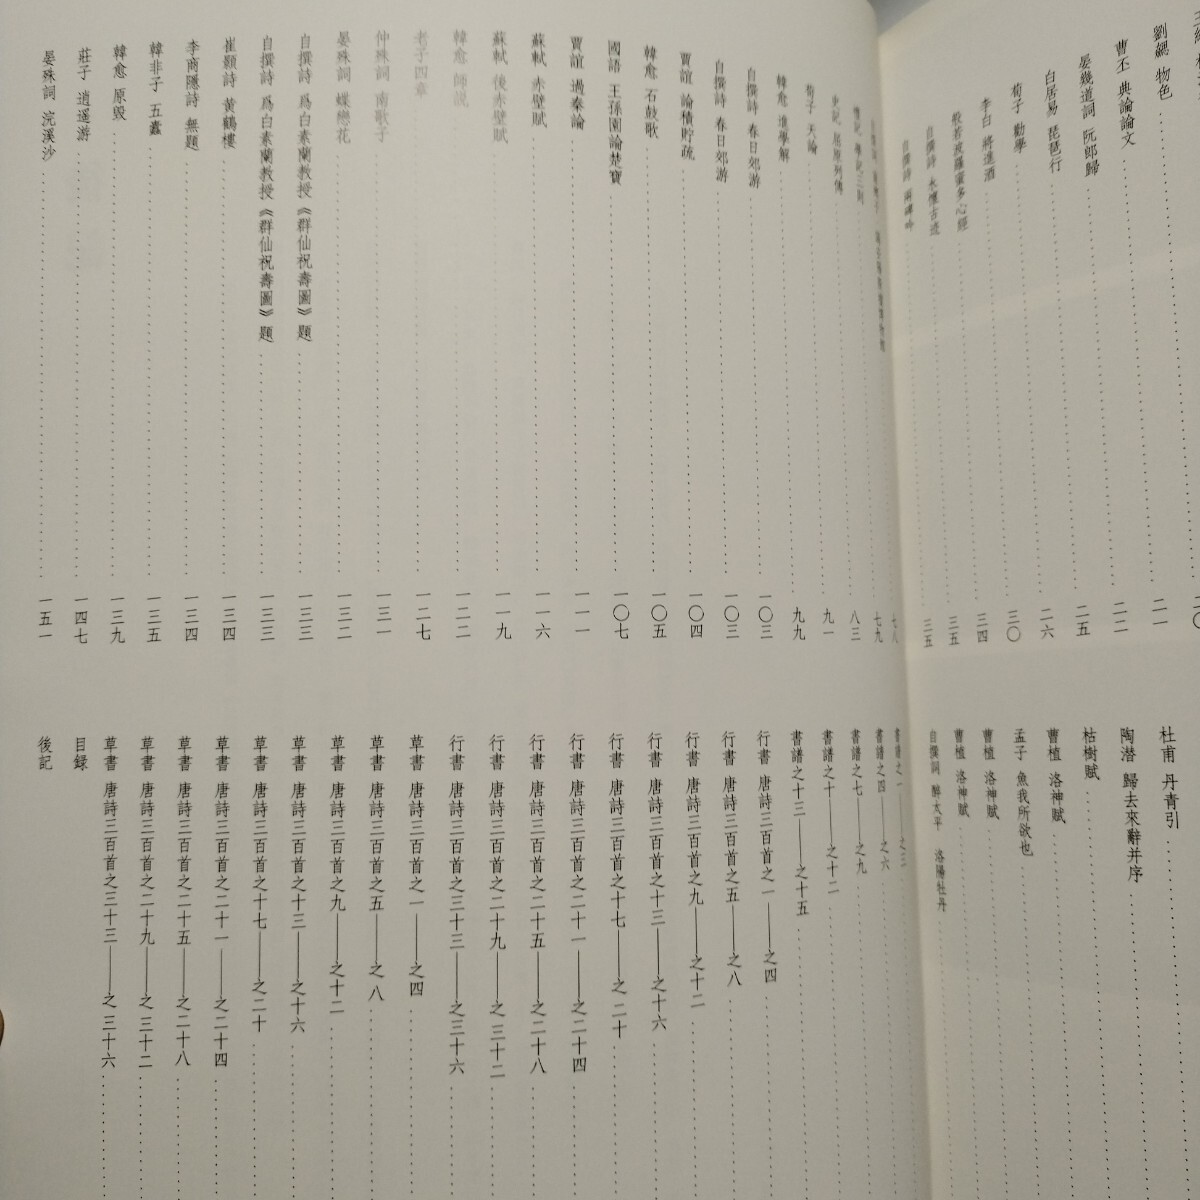 劉勰 物色 二一
曹丕 典論論文 二二
晏幾道詞 阮郎歸 二五
白居易 琵琶行 二六
荀子 勸學 三〇
李白 將進酒 三四
般若波羅蜜多心經 三五
自撰詩 永懷古迹 三五
自撰詩 兩碑吟
杜甫 丹青引
陶潛 歸去來辭并序
枯樹賦
曹植 洛神賦
孟子 魚我所欲也
曹植 洛神賦
曹植 洛神賦
自撰詞 醉太平 洛陽牡丹
七八
禮記 學記三則 七九
史記 屈原列傳 八三
荀子 天論 九一
韓愈 進學解 九九
自撰詩 春日郊游 一〇三
自撰詩 春日郊游 一〇三
賈誼 論積貯疏 一〇四
韓愈 石鼓歌 一〇五
國語 王孫圉論楚寶 一〇七
賈誼 過秦論 一一一
蘇軾 赤壁賦 一一六
蘇軾 後赤壁賦 一一九
韓愈 師説 一二二
老子四章 一二七
仲殊詞 南歌子 一三一
晏殊詞 蝶戀花 一三二
自撰詩 爲白素蘭教授《群仙祝壽圖》題 一三三
自撰詩 爲白素蘭教授《群仙祝壽圖》題 一三三
崔顥詩 黃鶴樓 一三四
李商隱詩 無題 一三四
韓非子 五蠹 一三五
韓愈 原毀 一三九
莊子 逍遥游 一四七
晏殊詞 浣溪沙 一五一
書譜之一——之三
書譜之四——之六
書譜之七——之九
書譜之十——之十二
書譜之十三——之十五
行書 唐詩三百首之一——之四
行書 唐詩三百首之五——之八
行書 唐詩三百首之九——之十二
行書 唐詩三百首之十三——之十六
行書 唐詩三百首之十七——之二十
行書 唐詩三百首之二十一——之二十四
行書 唐詩三百首之二十五——之二十八
行書 唐詩三百首之二十九——之三十二
行書 唐詩三百首之三十三——之三十六
草書 唐詩三百首之一——之四
草書 唐詩三百首之五——之八
草書 唐詩三百首之九——之十二
草書 唐詩三百首之十三——之十六
草書 唐詩三百首之十七——之二十
草書 唐詩三百首之二十一——之二十四
草書 唐詩三百首之二十五——之二十八
草書 唐詩三百首之二十九——之三十二
草書 唐詩三百首之三十三——之三十六
目録
後記